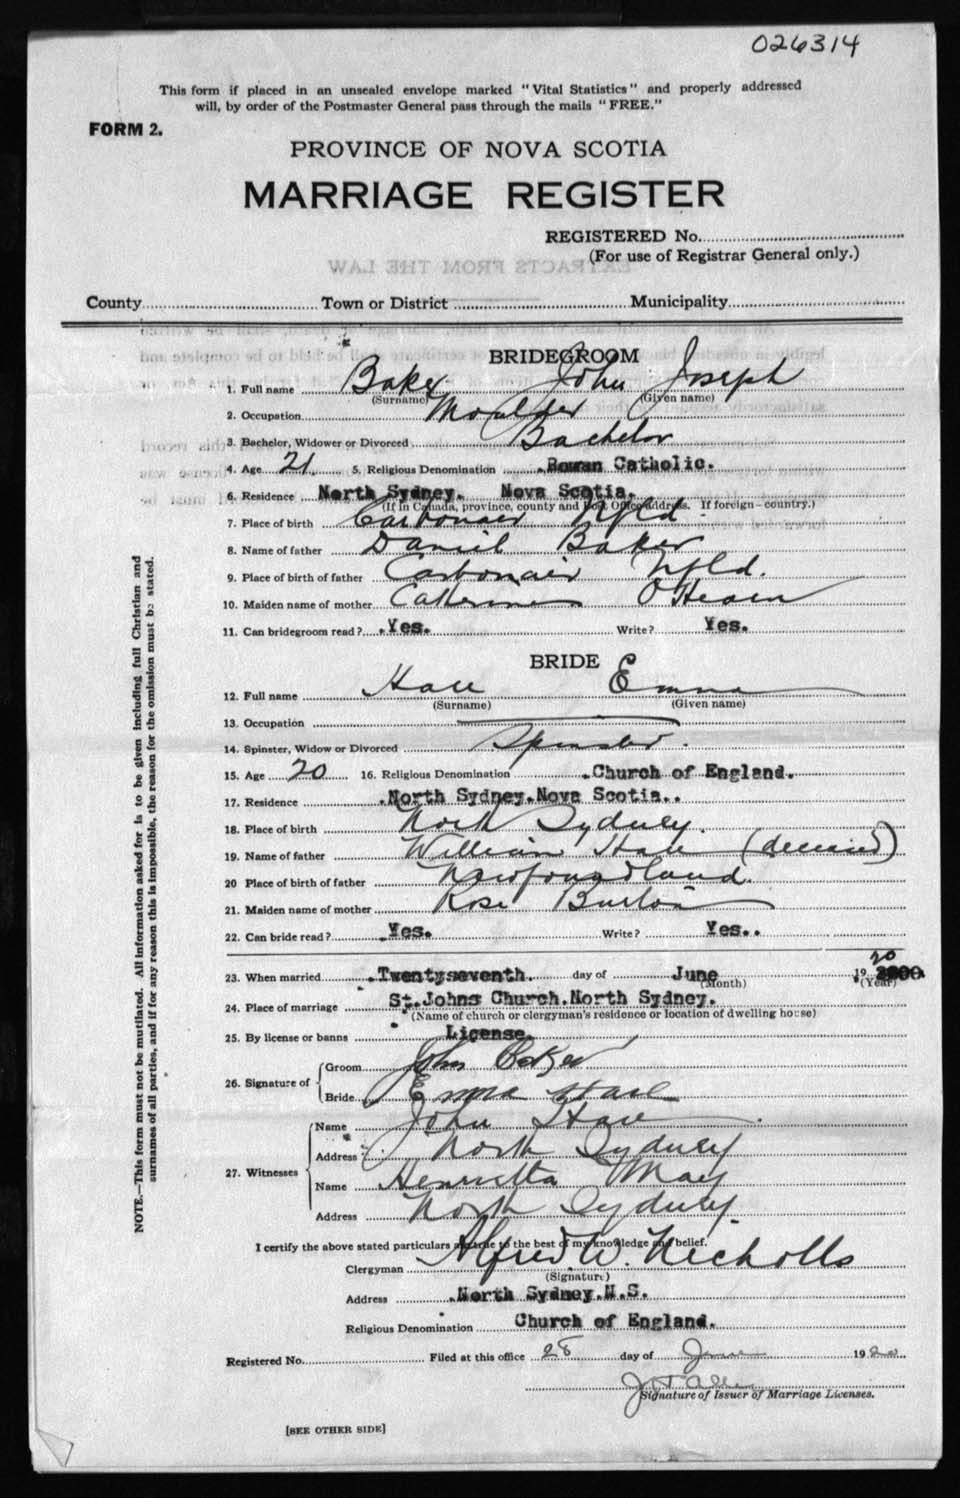 026314
This form if placed in an unsealed envelope marked "Vital Statistics" and properly addressed
will, by order of the Postmaster General pass through the mails "FREE."
FORM 2.
PROVINCE OF NOVA SCOTIA
MARRIAGE REGISTER
REGISTERED No.
(For use of Registrar General only.)
EXTRACTS FROM THE LAW
County Town or District Municipality
BRIDEGROOM
1. Full name Baker John Joseph
(Surname) (Given name)
2. Occupation Moulder
3. Bachelor, Widower or Divorced Bachelor
4. Age 21 5. Religious Denomination Roman Catholic.
6. Residence North Sydney. Nova Scotia.
(If in Canada, province, county and Post Office address. If foreign—country.)
7. Place of birth Carbonair Nfld
8. Name of father Daniel Baker
9. Place of birth of father Carbonair Nfld.
10. Maiden name of mother Catherine O'Hearn
11. Can bridegroom read? Yes. Write? Yes.
BRIDE
12. Full name Hall Emma
(Surname) (Given name)
13. Occupation
14. Spinster, Widow or Divorced Spinster.
15. Age 20 16. Religious Denomination Church of England.
17. Residence North Sydney. Nova Scotia..
18. Place of birth North Sydney.
19. Name of father William Hall (deceased)
20 Place of birth of father Newfoundland.
21. Maiden name of mother Rose Burton
22. Can bride read? Yes. Write? Yes..
23. When married Twentyseventh. day of June 19 20
(Month) (Year)
24. Place of marriage St. Johns Church. North Sydney.
(Name of church or clergyman's residence or location of dwelling house)
25. By license or banns License.
26. Signature of Groom John Baker
Bride Emma Hall
27. Witnesses Name John Hall
Address North Sydney
Name Henrietta May
Address North Sydney.
I certify the above stated particulars are true to the best of my knowledge and belief.
Clergyman Alfred W. Nicholls
(Signature)
Address North Sydney. N.S.
Religious Denomination Church of England.
Registered No. Filed at this office 28 day of June 1920
Signature of Issuer of Marriage Licenses.
[SEE OTHER SIDE]
NOTE.—This form must not be mutilated. All information asked for is to be given including full Christian and
surnames of all parties, and if for any reason this is impossible, the reason for the omission must be stated.